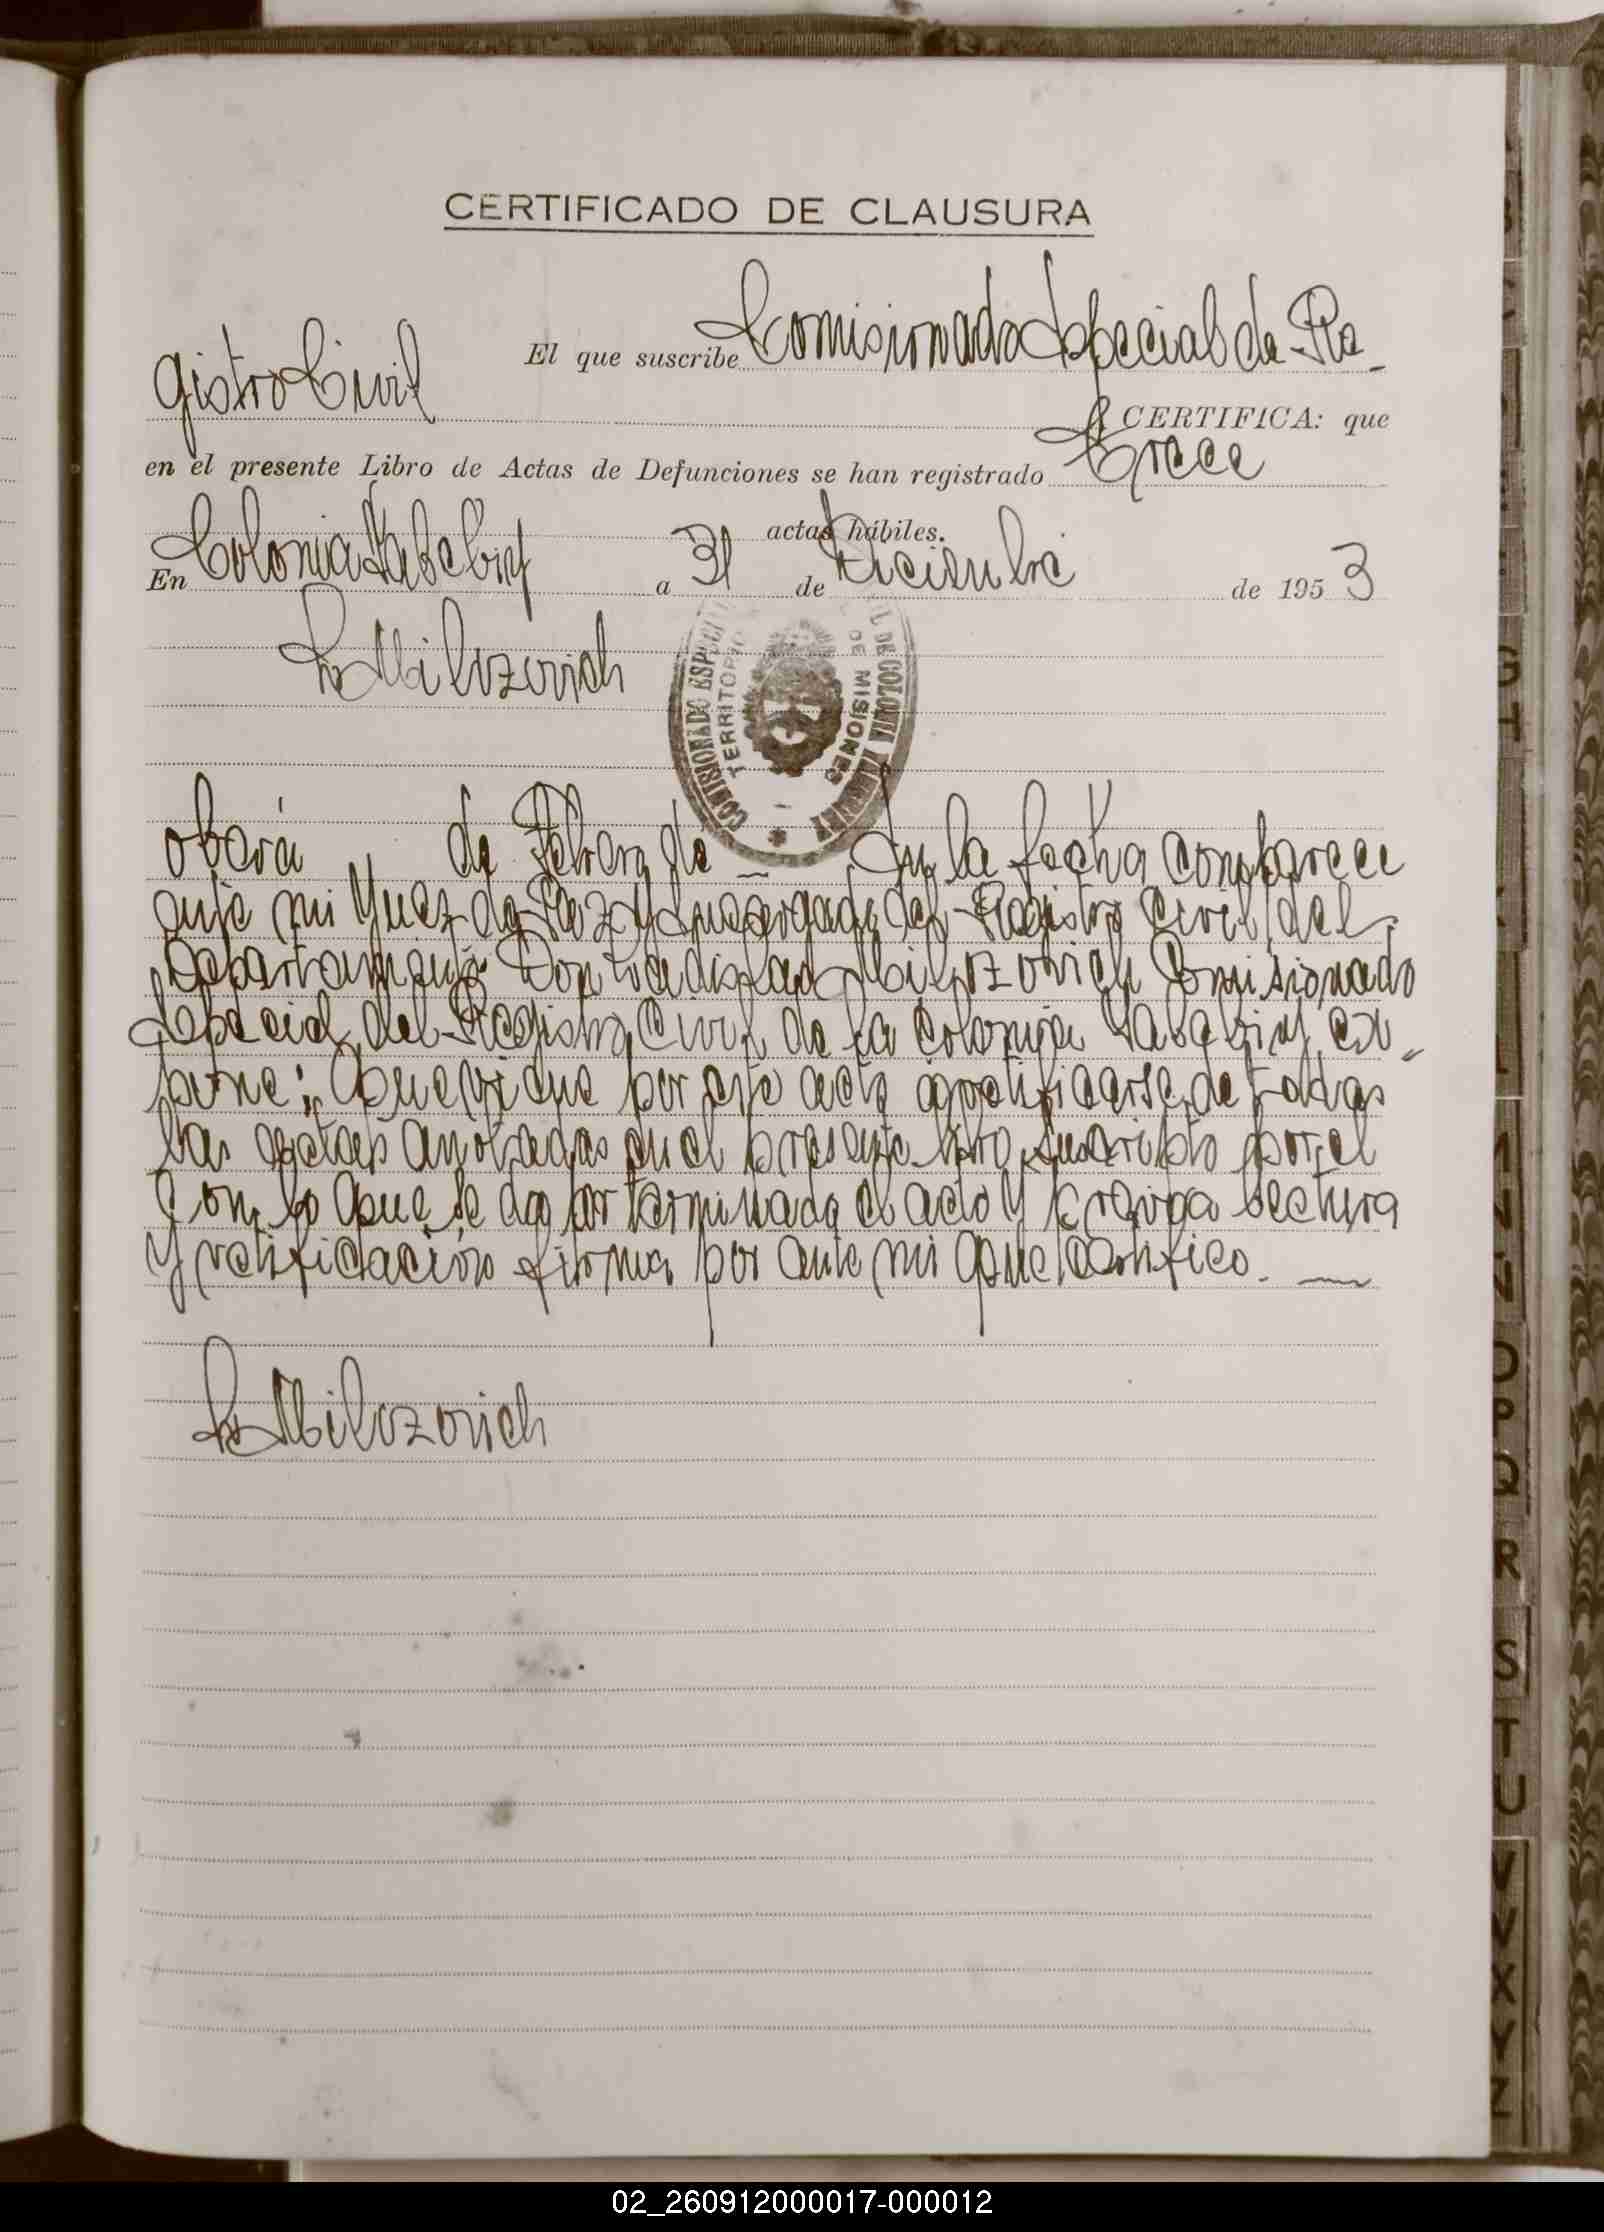 CERTIFICADO DE CLAUSURA
El que suscribe Comisionado Especial de Re-
gistro Civil CERTIFICA: que
en el presente Libro de Actas de Defunciones se han registrado Trece
actas hábiles.
En Colonia Yabebiry a 31 de Diciembre de 1953
L. Milozovich
COMISIONADO ESPECIAL DE COLONIA
TERRITORIO DE MISIONES
Oberá de Febrero de En la fecha comparece
ante mi Juez de Paz y Encargado del Registro Civil del
Departamento Don Ladislao Milozovich Comisionado
Especial del Registro Civil de la Colonia Yabebiry, ex-
pone: Que viene por este acto a ratificarse de todas
las actas anotadas en el presente libro suscripto por el
Con lo que se da por terminado el acto y previa lectura
y ratificación firma por ante mi que certifico.
L. Milozovich
G
M
N
N
O
P
Q
R
S
T
U
V
X
Y
Z
02_260912000017-000012